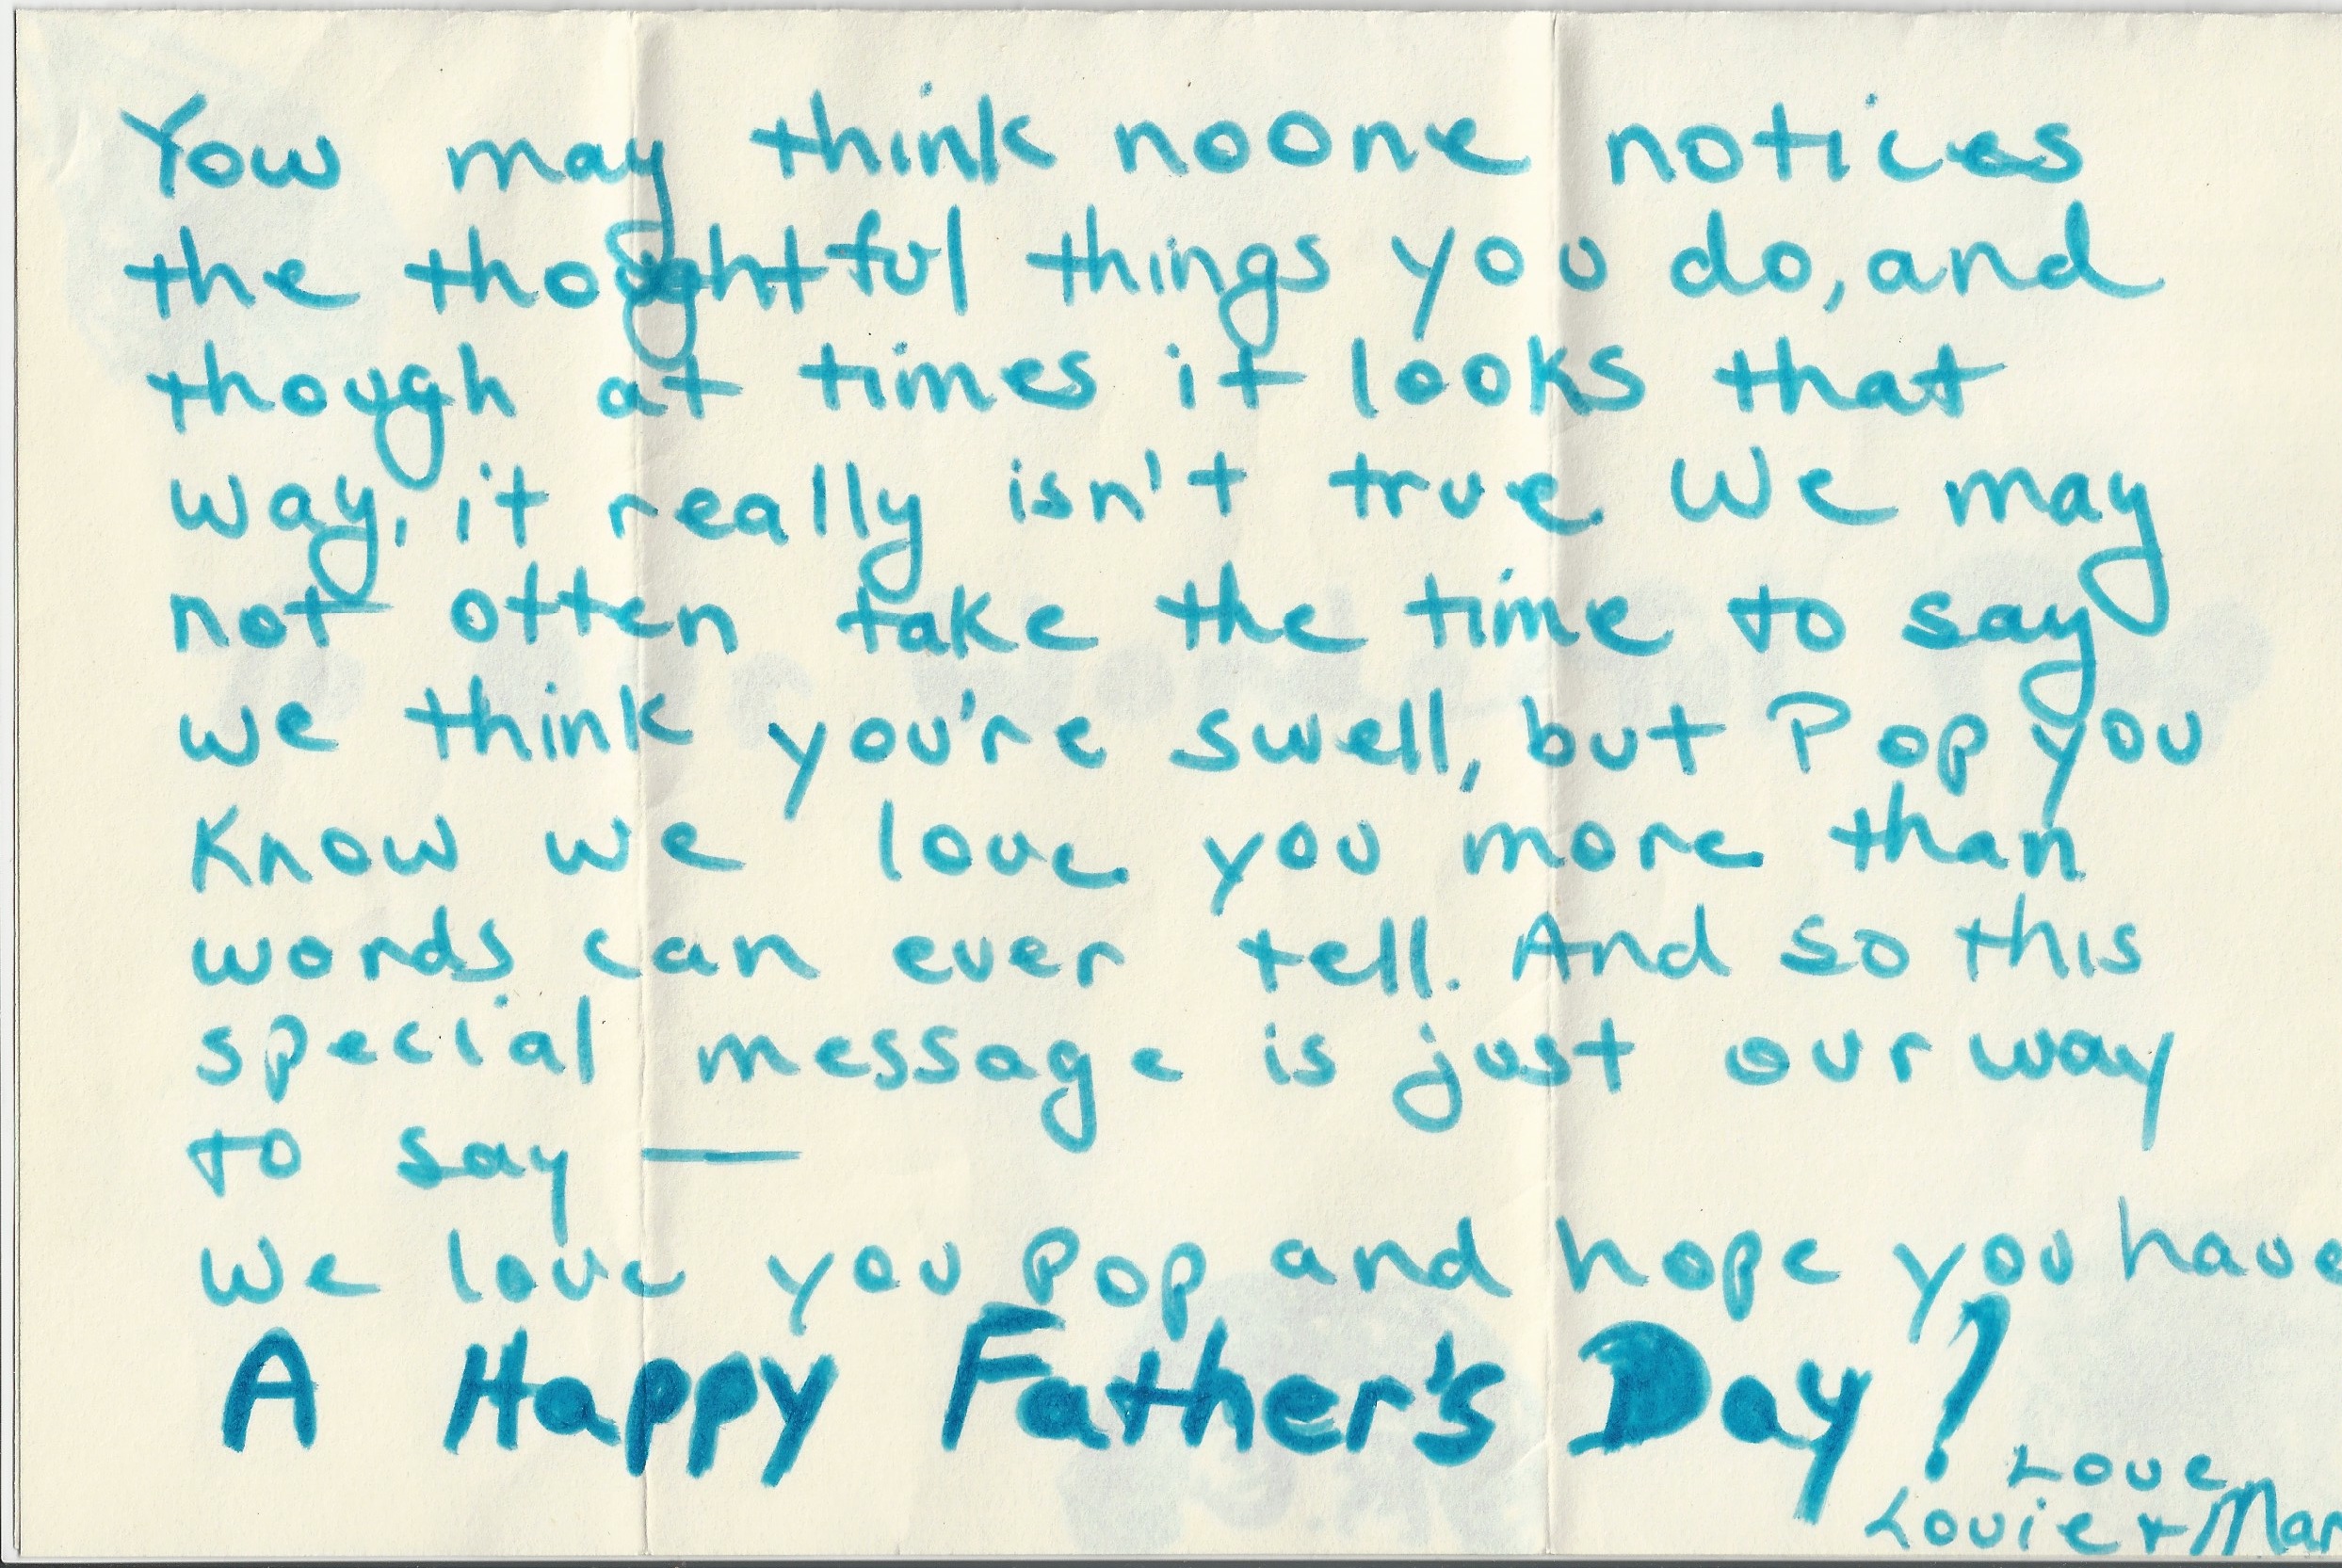 You may think noone notices
the thoughtful things you do, and
though at times it looks that
way, it really isn't true. We may
not often take the time to say
we think you're swell, but Pop you
know we love you more than
words can ever tell. And so this
special message is just our way
to say —
We love you Pop and hope you have
A Happy Father's Day!
Love,
Louie + Mar